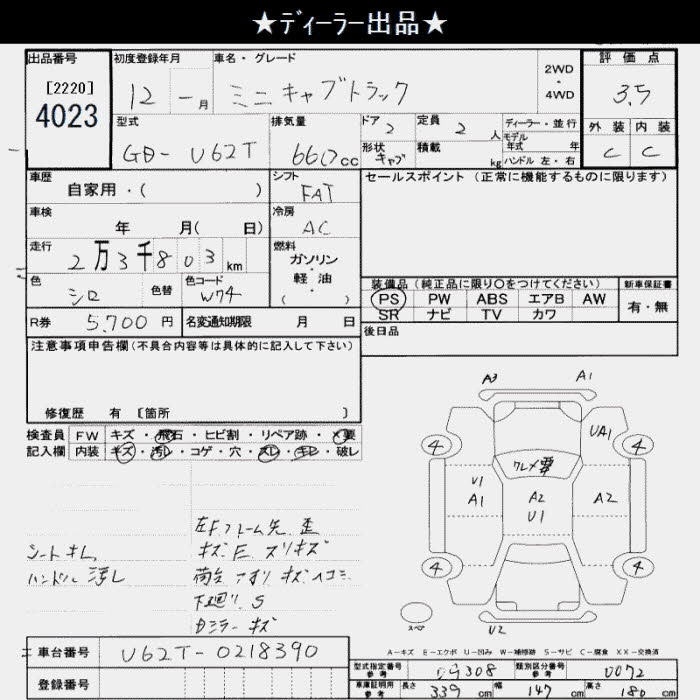 ★ディーラー出品★
出品番号 初度登録年月 車名・グレード 2WD・4WD 評価点
[2220] 4023 12 - 月 ミニキャブトラック 3.5
型式 排気量 ドア 2 定員 2 人 ディーラー・並行 外装 内装
GD-U62T 660cc 形状 キャブ 積載 kg モデル年式 年 ハンドル 左・右 C C
車歴 シフト セールスポイント (正常に機能するものに限ります)
自家用・( ) FAT
車検 冷房
年 月( 日) AC
走行 燃料
2万3千803km ガソリン・軽油
色 色替 色コード ( )
シロ W74
装備品 (純正品に限り〇をつけてください) 新車保証書
PS PW ABS エアB AW 有・無
SR ナビ TV カワ
R券 5,700 円 名変通知期限 月 日
後日品
注意事項申告欄(不具合内容等は具体的に記入して下さい)
修復歴 有 [箇所 ]
検査員 FW キズ・飛石・ヒビ割・リペア跡・×要
記入欄 内装 キズ・汚レ・コゲ・穴・スレ・キレ・破レ
A3 A1
UA1
4 4
クレメ要
U1 A1 A2 U1 A2
4 4
スペア U2
左Fフレーム先 歪
シートキレ キズ E スリキズ
ハンドル汚レ 荷台 アオリ キズ ヘコミ
下廻リ S
ミラー キズ
A-キズ E-エクボ U-凹み W-補修跡 S-サビ C-腐食 XX-交換済
車台番号 U62T-0218390
登録番号
型式指定番号 参考 09308 類別区分番号 参考 0072
車庫証明用 参考 長さ 339 cm 幅 147 cm 高さ 180 cm